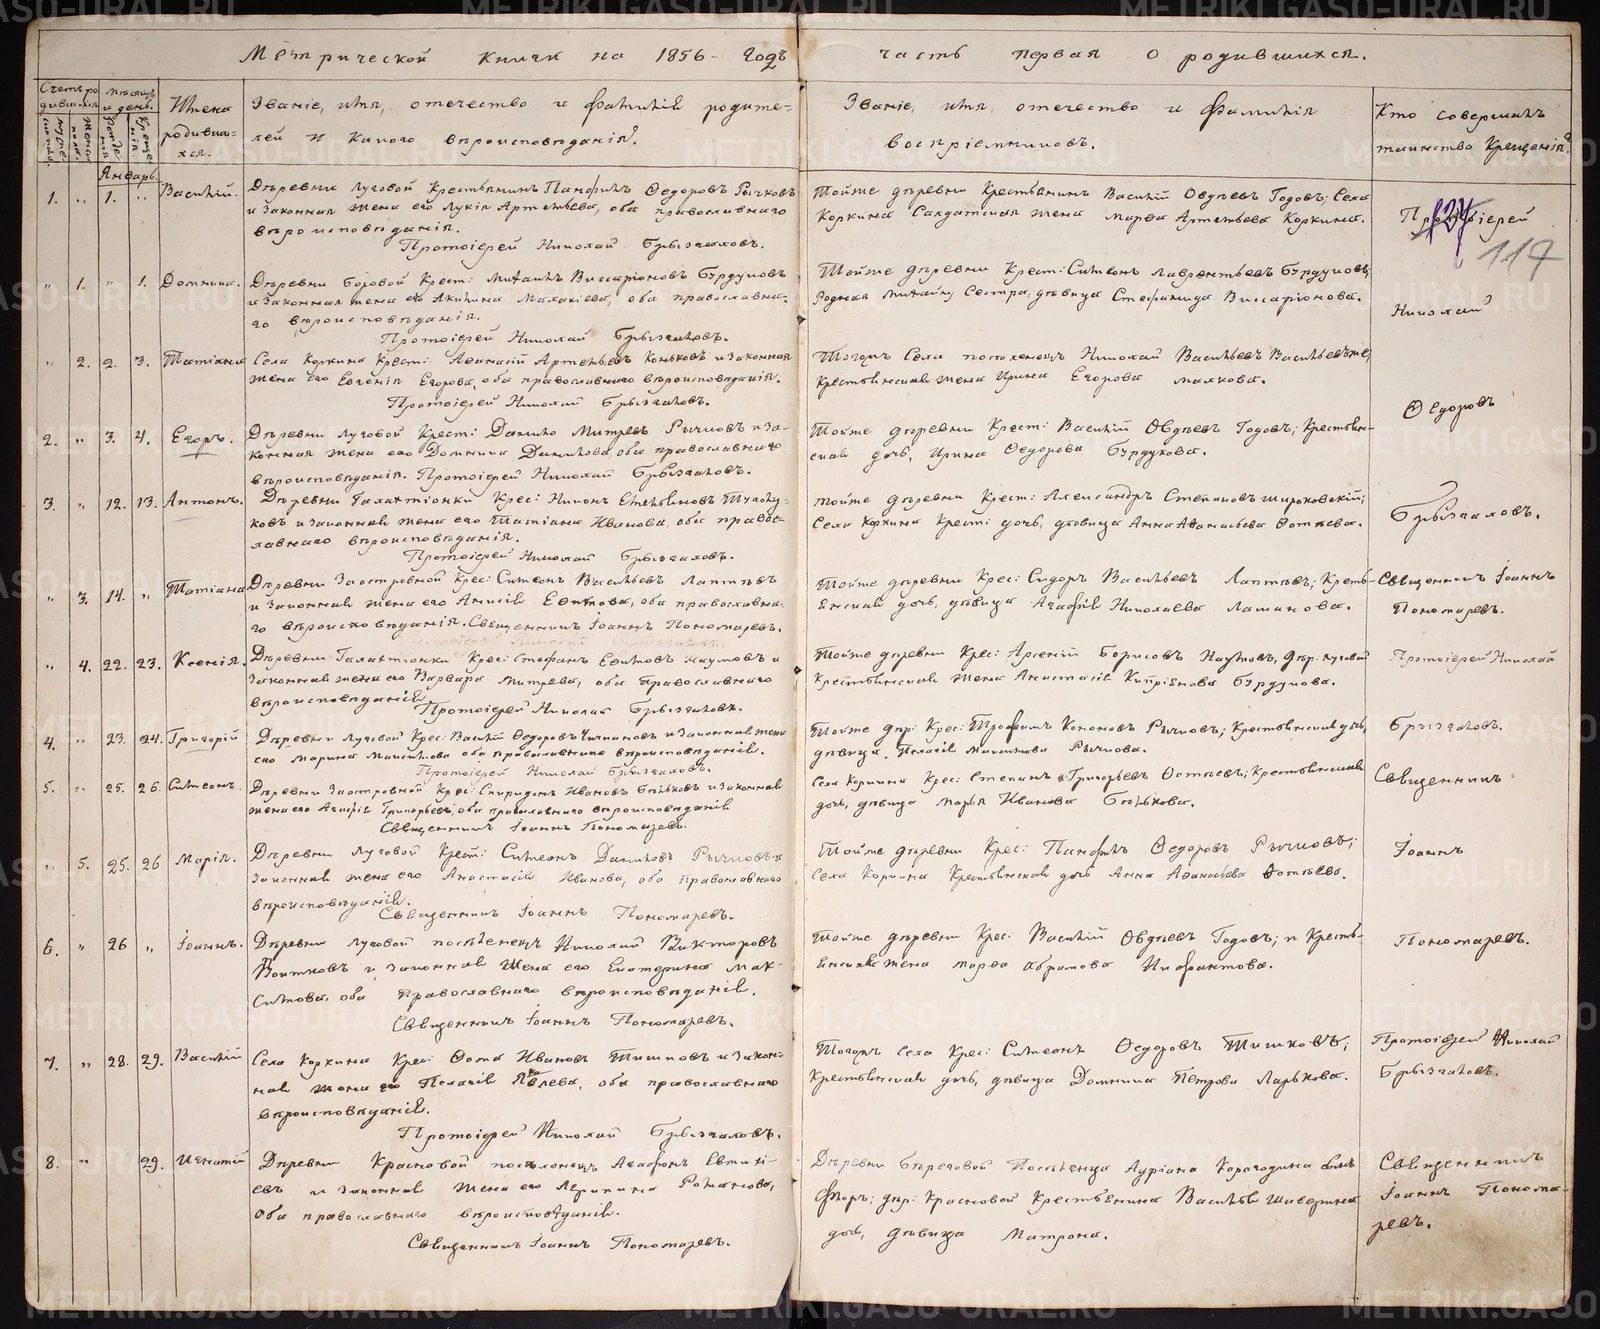 Метрической книги на 1856 годъ часть первая о родившихся.
Счетъ родившихся
Мѣсяцъ и день.
Имена родившихся.
Званіе, имя, отечество и фамилія родителей и какого вѣроисповѣданія.
Званіе, имя, отечество и фамилія воспріемниковъ.
Кто совершалъ таинство Крещенія.
Январь
1. „ 1. „ Василій. Деревни Луговой Крестьянинъ Панфилъ Ѳедоровъ Рычковъ
и Законная жена его Лукія Артемьева, оба православнаго
вѣроисповѣданія.
Протоіерей Николай Брызгаловъ.
Тойже деревни Крестьянинъ Василій Овдѣевъ Годовъ; Села
Коркина Салдатская жена Марѳа Артемьева Коркина.
Протоіерей
117
„ 1. „ 1. Домника. Деревни Боровой Крест: Михаилъ Виссаріоновъ Бурдуковъ
и Законная жена его Акилина Малахіева, оба православна-
го вѣроисповѣданія.
Протоіерей Николай Брызгаловъ.
Тойже деревни Крест: Симеонъ Лаврентьевъ Бурдуковъ;
Родная Михаилу Сестра, дѣвица Стефанида Виссаріонова.
Николай
„ 2. 2. 3. Татіана Села Коркина Крест: Аѳанасій Артемьевъ Коньковъ и законная
жена его Евгенія Егорова, оба православнаго вѣроисповѣданія.
Протоіерей Николай Брызгаловъ.
Тогожъ Села поселенецъ Николай Васильевъ Васильевъже;
Крестьянская жена Ирина Егорова Малкова.
Ѳедоровъ
2. „ 3. 4. Егоръ. Деревни Луговой Крест: Данило Митревъ Рычковъ и за-
конная жена его Домника Данилова, оба православнаго
вѣроисповѣданія. Протоіерей Николай Брызгаловъ.
Тойже деревни Крест: Василій Овдѣевъ Годовъ; Крестьян-
ская дочь, Ирина Ѳедорова Бурдукова.
3. „ 12. 13. Антонъ. Деревни Галактіонки Крес: Никонъ Емельяновъ
ковъ и законная жена его Татіана Иванова, оба правос-
лавнаго вѣроисповѣданія.
Протоіерей Николай Брызгаловъ.
Тойже деревни Крест: Александръ Степановъ Широковскій;
Села Коркина Крест: дочь, дѣвица Анна Аѳанасьева Фотѣева.
Брызгаловъ.
„ 3. 14. „ Татіана Деревни Заостровной Крес: Симеонъ Васильевъ Лаптевъ
и Законная жена его Анисія Ефимова, оба православна-
го вѣроисповѣданія. Священникъ Іоаннъ Пономаревъ.
Тойже деревни Крес: Сидоръ Васильевъ Лаптевъ; Кресть-
янская дочь, дѣвица Агафія Николаева Ламанова.
Священникъ Іоаннъ
Пономаревъ.
„ 4. 22. 23. Ксенія. Деревни Галактіонки Крес: Стефанъ Ефимовъ Наумовъ и
Законная жена его Варвара Митрева, оба православнаго
вѣроисповѣданія.
Протоіерей Николай Брызгаловъ.
Тойже деревни Крес: Арсеній Борисовъ Наумовъ, дер: Луговой
Крестьянская жена Анастасія Кипріянова Бурдукова.
Протоіерей Николай
4. „ 23. 24. Григорій Деревни Луговой Крес: Василій Ѳедоровъ и Законная жена
его Марина Максимова оба православнаго вѣроисповѣданія.
Протоіерей Николай Брызгаловъ.
Тойже дер: Крес: Трофимъ Кононовъ Рычковъ; Крестьянская дочь,
дѣвица Пелагія Максимова Рычкова.
Брызгаловъ.
5. „ 25. 26. Симеонъ. Деревни Заостровной Крес: Спиридонъ Ивановъ Бѣльковъ и Законная
жена его Агафія Григорьева, оба православнаго вѣроисповѣданія
Священникъ Іоаннъ Пономаревъ.
Села Коркина Крес: Степанъ Григорьевъ Фотѣевъ; Крестьянская
дочь, дѣвица Марья Иванова Бѣлькова.
Священникъ
„ 5. 25. 26 Марія. Деревни Луговой Крест: Симеонъ Даниловъ Рычковъ и
Законная жена его Анастасія Иванова, оба православнаго
вѣроисповѣданія.
Священникъ Іоаннъ Пономаревъ.
Тойже деревни Крес: Панфилъ Ѳедоровъ Рычковъ;
Села Коркина Крестьянская дочь Анна Аѳанасьева Фотѣева.
Іоаннъ
6. „ 26 „ Іоаннъ. Деревни Луговой поселенецъ Николай Викторовъ
Войтковъ и Законная жена его Екатерина Мак-
симова, оба Православнаго вѣроисповѣданія.
Священникъ Іоаннъ Пономаревъ.
Тойже деревни Крес: Василій Овдѣевъ Годовъ; и Кресть-
янская жена Марѳа Абрамова Нифантова.
Пономаревъ.
7. „ 28. 29. Василій Села Коркина Крес: Ѳома Ивановъ Тишковъ и Закон-
ная жена его Пелагія Яковлева, оба православнаго
вѣроисповѣданія.
Протоіерей Николай Брызгаловъ.
Тогожъ Села Крес: Симеонъ Ѳедоровъ Тишковъ;
Крестьянская дочь, дѣвица Домника Петрова Ларькова.
Протоіерей Николай
Брызгаловъ.
8. „ 29. Игнатій Деревни Красновой поселенецъ Агафонъ Евтихі-
евъ и Законная жена его Романова,
Оба православнаго вѣроисповѣданія.
Священникъ Іоаннъ Пономаревъ.
Деревни Береговой Поселенца Ауріана Карагодина сынъ
Флоръ; дер: Красновой Крестьянина Василья Шаверина
дочь, дѣвица Матрона.
Священникъ
Іоаннъ Понома-
ревъ.
METRIKI.GASO-URAL.RU